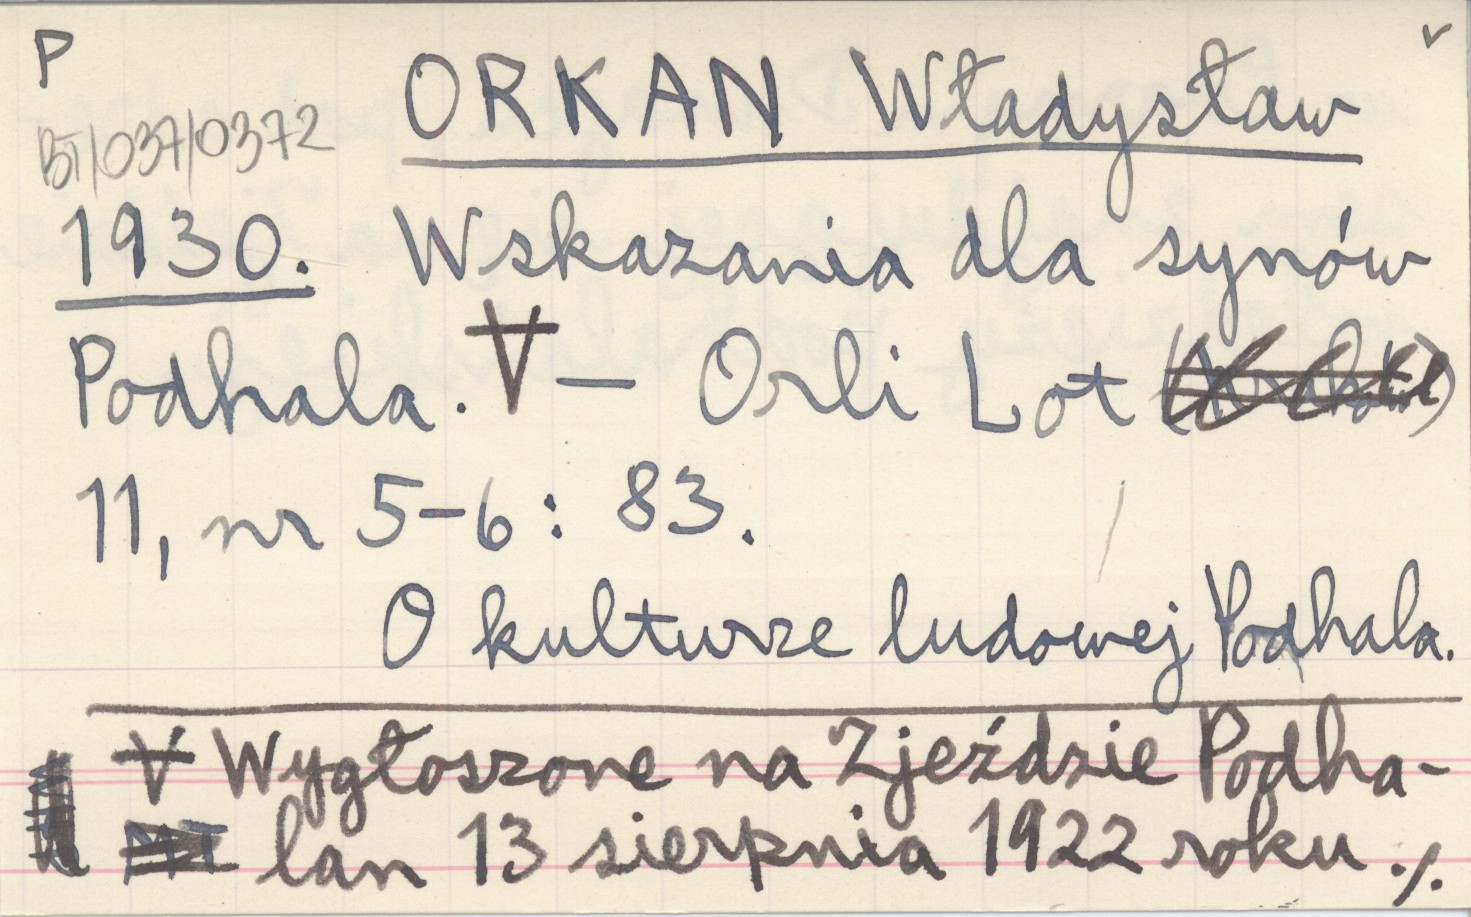 P
ORKAN Władysław
BT/037/0372
1930. Wskazania dla synów
Podhala. V — Orli Lot
11, nr 5-6: 83.
O kulturze ludowej Podhala.
V Wygłoszone na Zjeździe Podha-
lan 13 sierpnia 1922 roku ./.